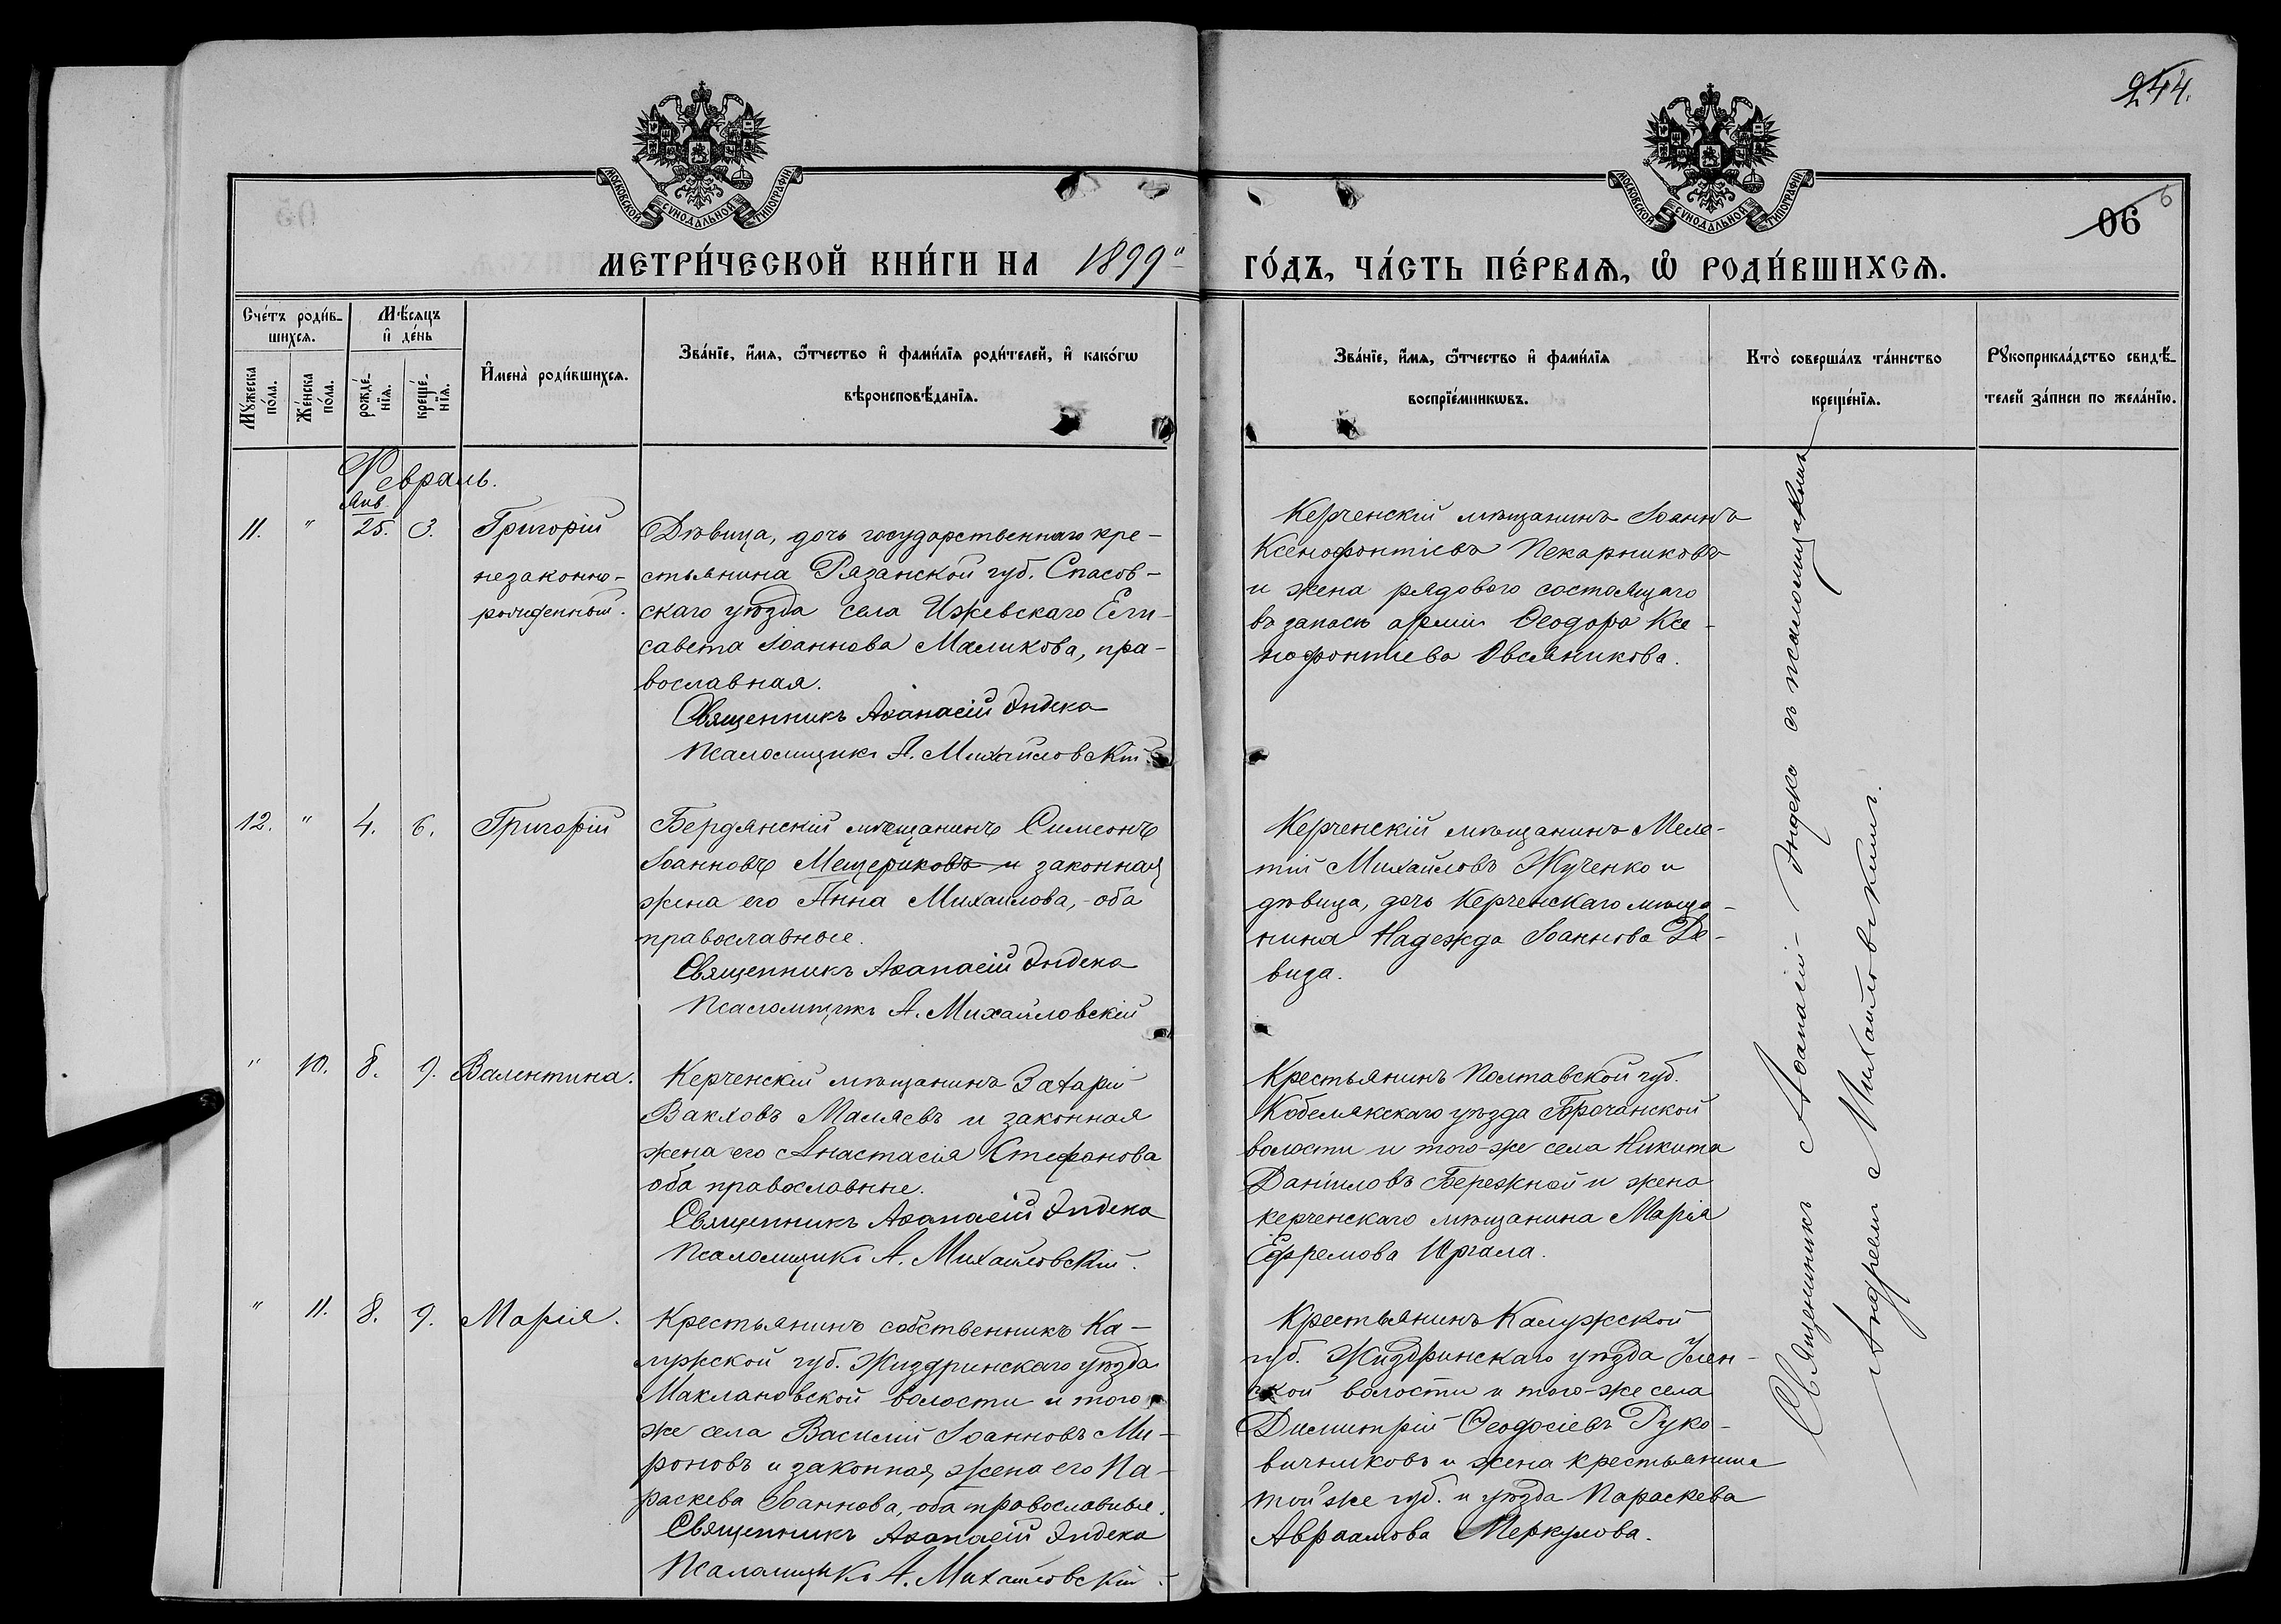 244.
МОСКОВСКОЙ СѴНОДАЛЬНОЙ ТИПОГРАФІИ
МОСКОВСКОЙ СѴНОДАЛЬНОЙ ТИПОГРАФІИ
06
6
МЕТРИ́ЧЕСКОЙ КНИ́ГИ НА 1899й
ГО́ДЪ, ЧА́СТЬ ПЕ́РВАѦ, Ѽ РОДИ́ВШИХСѦ.
Счéтъ роди́в-
шихсѧ.
Мꙋ́жеска по́ла.
Же́нска по́ла.
Мѣ́сѧцъ
и҆ де́нь
рожде́-
нїѧ.
креще́-
нїѧ.
И҆мена̀ роди́вшихсѧ.
Зва́нїе, и҆́мѧ, ѻ҆́тчество и҆ фами́лїѧ роди́телей, и҆ како́гѡ
вѣроисповѣ́данїѧ.
Зва́нїе, и҆́мѧ, ѻ҆́тчество и҆ фами́лїѧ
воспрїе́мникѡвъ.
Кто̀ соверша́лъ та́инство
креще́нїѧ.
Рꙋкоприкла́дство свидѣ́-
телей за́писи по жела́нїю.
Февраль.
Янв.
11. " 25. 3. Григорій
незаконно-
рожденный.
Дѣвица, дочь государственнаго кре-
стьянина Рязанской губ. Спасов-
скаго уѣзда села Ижевскаго Ели-
савета Іоаннова Маликова, пра-
вославная.
Священникъ Аѳанасій Индека
Псаломщикъ А. Михайловскій.
Керченскій мѣщанинъ Іоаннъ
Ксенофонтіевъ Пекарниковъ
и жена рядового состоящаго
въ запасѣ арміи Ѳеодора Ксе-
нофонтіева Овсяникова.
12. " 4. 6. Григорій
Бердянскій мѣщанинъ Симеонъ
Іоанновъ Мещериковъ и законная
жена его Анна Михаилова, - оба
православные.
Священникъ Аѳанасій Индека
Псаломщикъ А. Михайловскій
Керченскій мѣщанинъ Меле-
тій Михайловъ Жученко и
дѣвица, дочь Керченскаго мѣща-
нина Надежда Іоаннова Де-
виза.
" 10. 8. 9. Валентина.
Керченскій мѣщанинъ Захарій
Вакховъ Маляевъ и законная
жена его Анастасія Стефанова
оба православные.
Священникъ Аѳанасій Индека
Псаломщикъ А. Михайловскій.
Крестьянинъ Полтавской губ.
Кобелякскаго уѣзда
волости и того-же села Никита
Даніиловъ Бережной и жена
керченскаго мѣщанина Марія
Ефремова
" 11. 8. 9. Марія.
Крестьянинъ собственникъ Ка-
лужской губ. Жиздринскаго уѣзда
Маклаковской волости и того
же села Василій Іоанновъ Ми-
роновъ и законная жена его Па-
раскева Іоаннова, - оба православные.
Священникъ Аѳанасій Индека
Псаломщикъ А. Михайловскій.
Крестьянинъ Калужской
губ. Жиздринскаго уѣзда Улем-
ской волости и того-же села
Димитрій Ѳеодосіевъ Руко-
вичниковъ и жена крестьянина
той же губ. и уѣзда Параскева
Авраамова Меркулова.
Священникъ Аѳанасій Индека съ псаломщикомъ
Андреемъ Михайловскимъ.